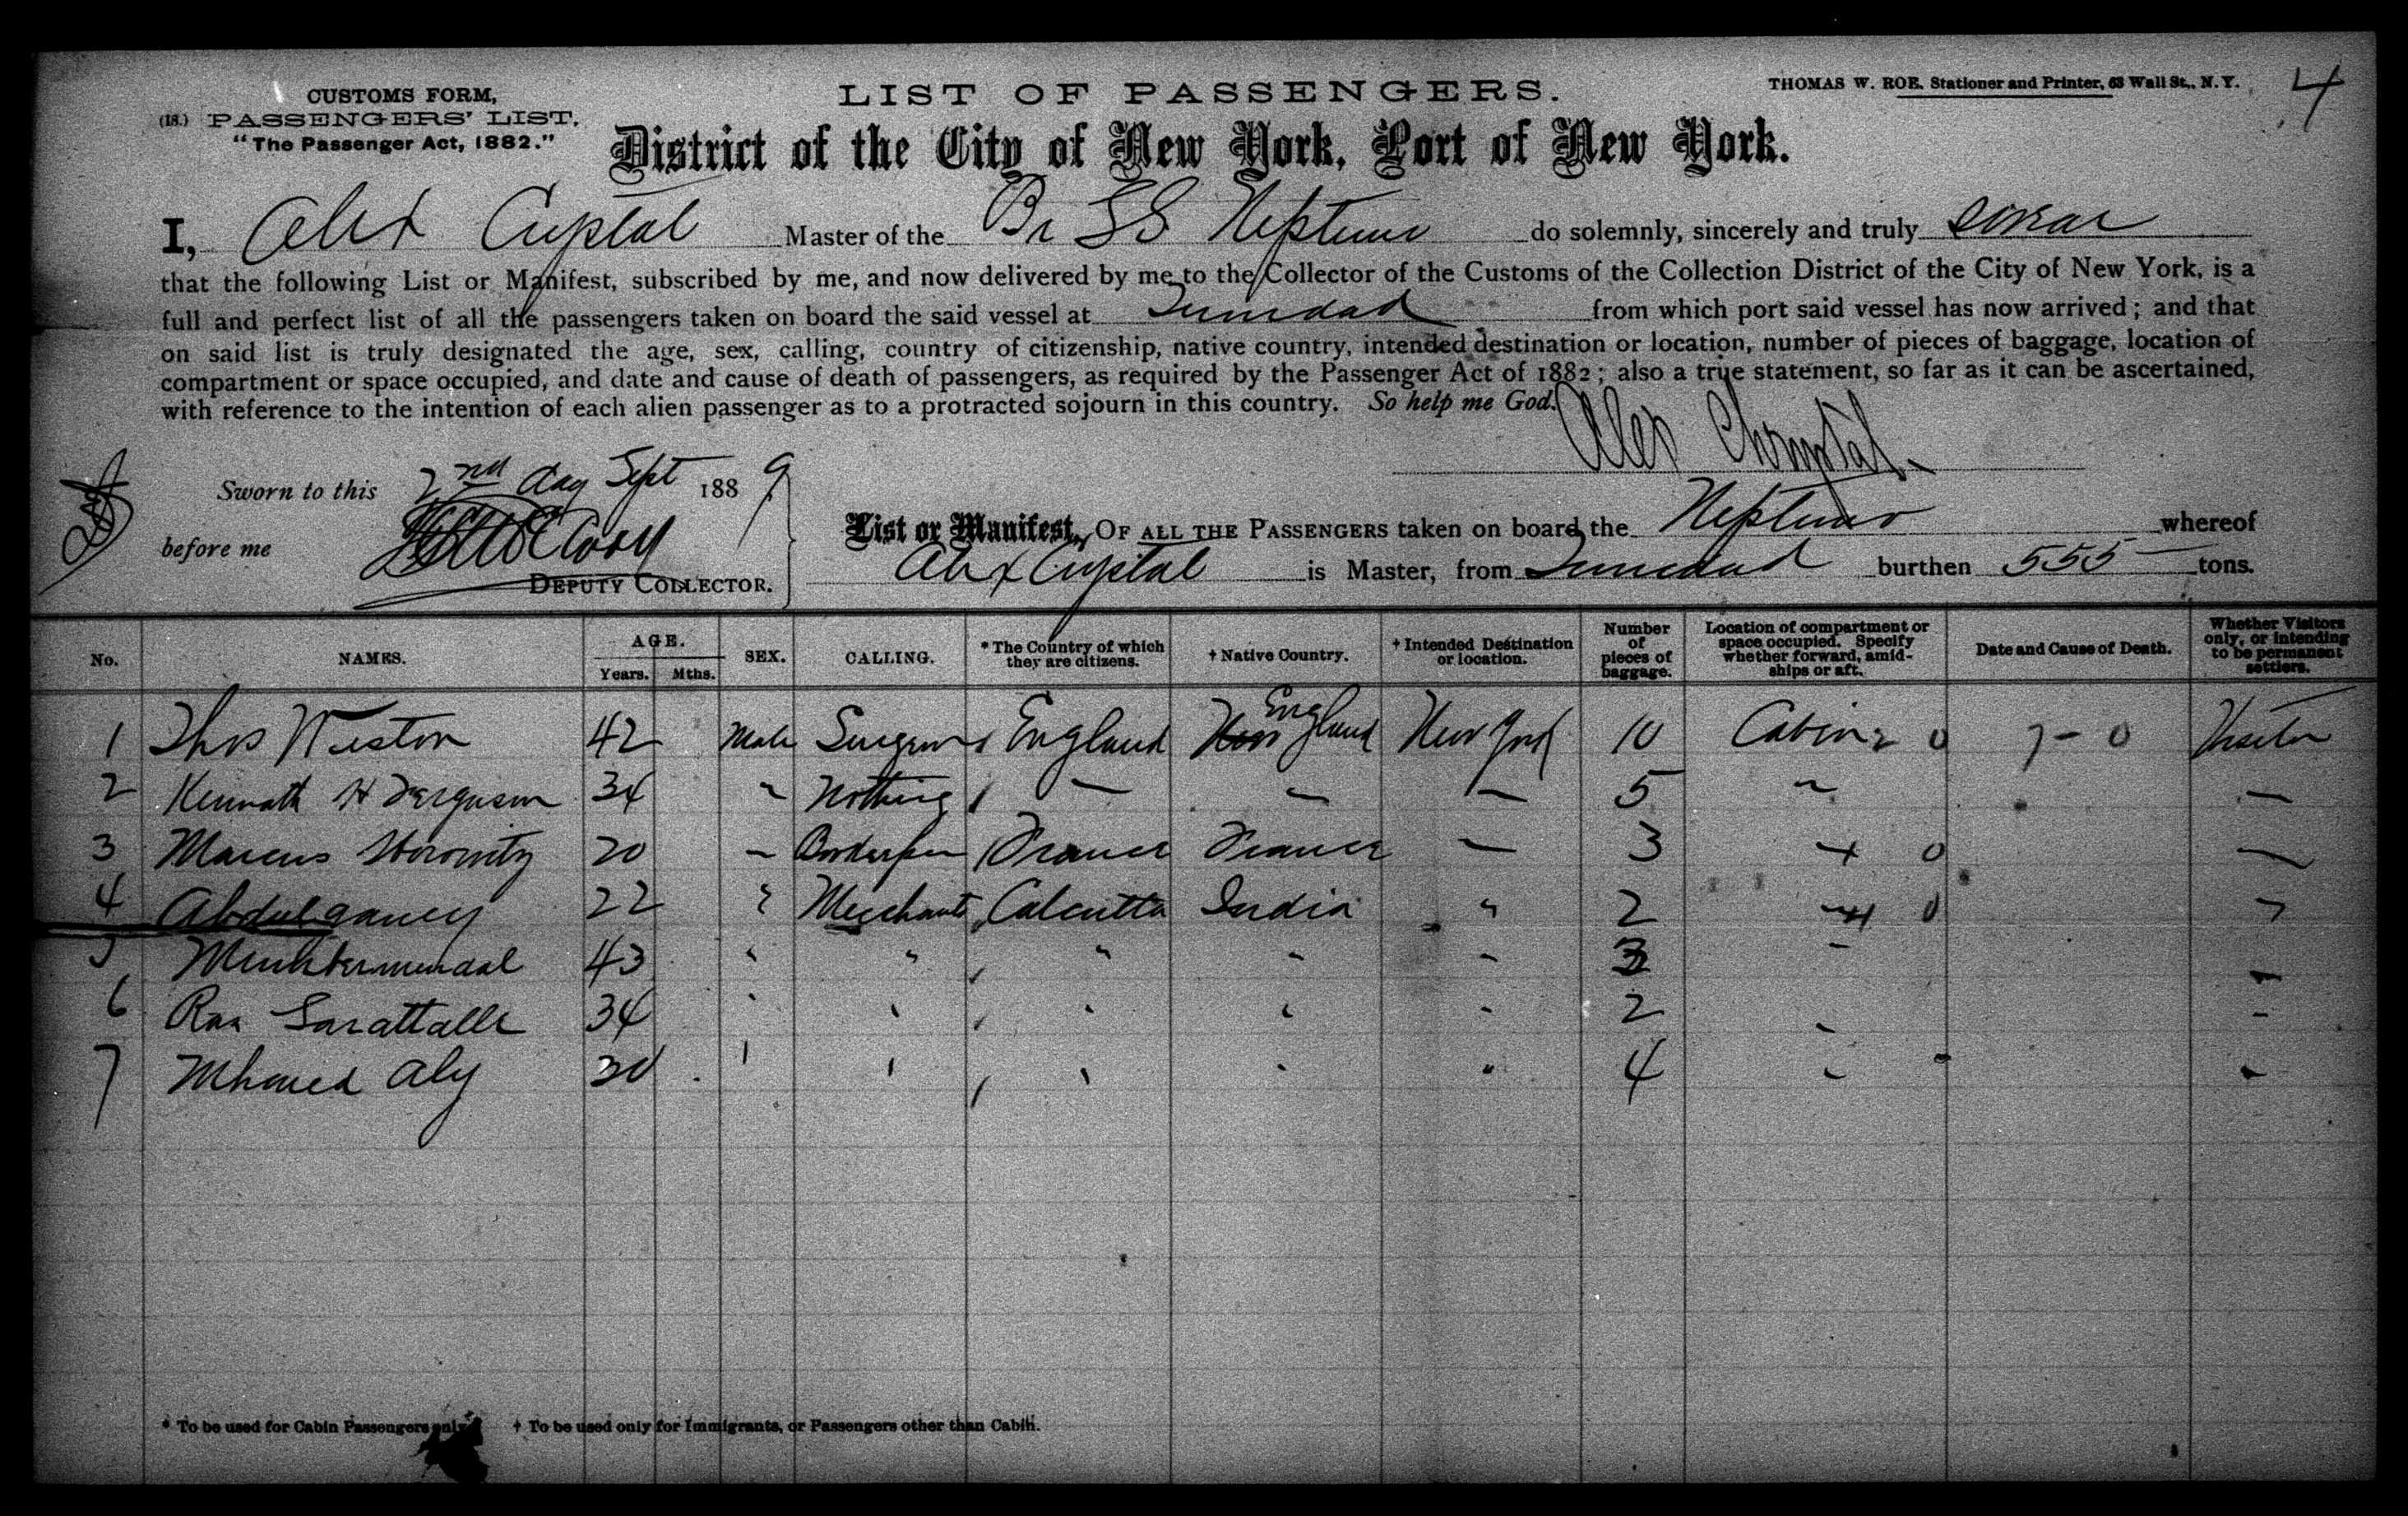 CUSTOMS FORM,
(18.) PASSENGERS' LIST.
"The Passenger Act, 1882."
LIST OF PASSENGERS.
THOMAS W. ROE. Stationer and Printer, 63 Wall St., N. Y.
4
District of the City of New York, Port of New York.
I, Alex Crystal Master of the Br SS Neptuno do solemnly, sincerely and truly swear
that the following List or Manifest, subscribed by me, and now delivered by me to the Collector of the Customs of the Collection District of the City of New York, is a
full and perfect list of all the passengers taken on board the said vessel at Trinidad from which port said vessel has now arrived; and that
on said list is truly designated the age, sex, calling, country of citizenship, native country, intended destination or location, number of pieces of baggage, location of
compartment or space occupied, and date and cause of death of passengers, as required by the Passenger Act of 1882; also a true statement, so far as it can be ascertained,
with reference to the intention of each alien passenger as to a protracted sojourn in this country. So help me God.
Alex Chrystal.
Sworn to this 2nd day Sept 1889
before me
DEPUTY COLLECTOR.
List or Manifest, OF ALL THE PASSENGERS taken on board the Neptuno whereof
Alex Crystal is Master, from Trinidad burthen 555 tons.
No. NAMES. AGE. Years. Mths. SEX. CALLING. * The Country of which they are citizens. † Native Country. † Intended Destination or location. Number of pieces of baggage. Location of compartment or space occupied. Specify whether forward, amidships or aft. Date and Cause of Death. Whether Visitors only, or intending to be permanent settlers.
1 Thos Weston 42 Male Surgeon England England New York 10 Cabin Visitor
2 Kennath H Ferguson 34 " Nothing " " " 5 " "
3 Marcus Horowitz 20 " France France " 3 " "
4 Abdulganey 22 " Merchant Calcutta India " 2 " "
5 43 " " " " " 3 " "
6 34 " " " " " 2 " "
7 Mhamed Aly 30 " " " " " 4 " "
* To be used for Cabin Passengers only. † To be used only for Immigrants, or Passengers other than Cabin.